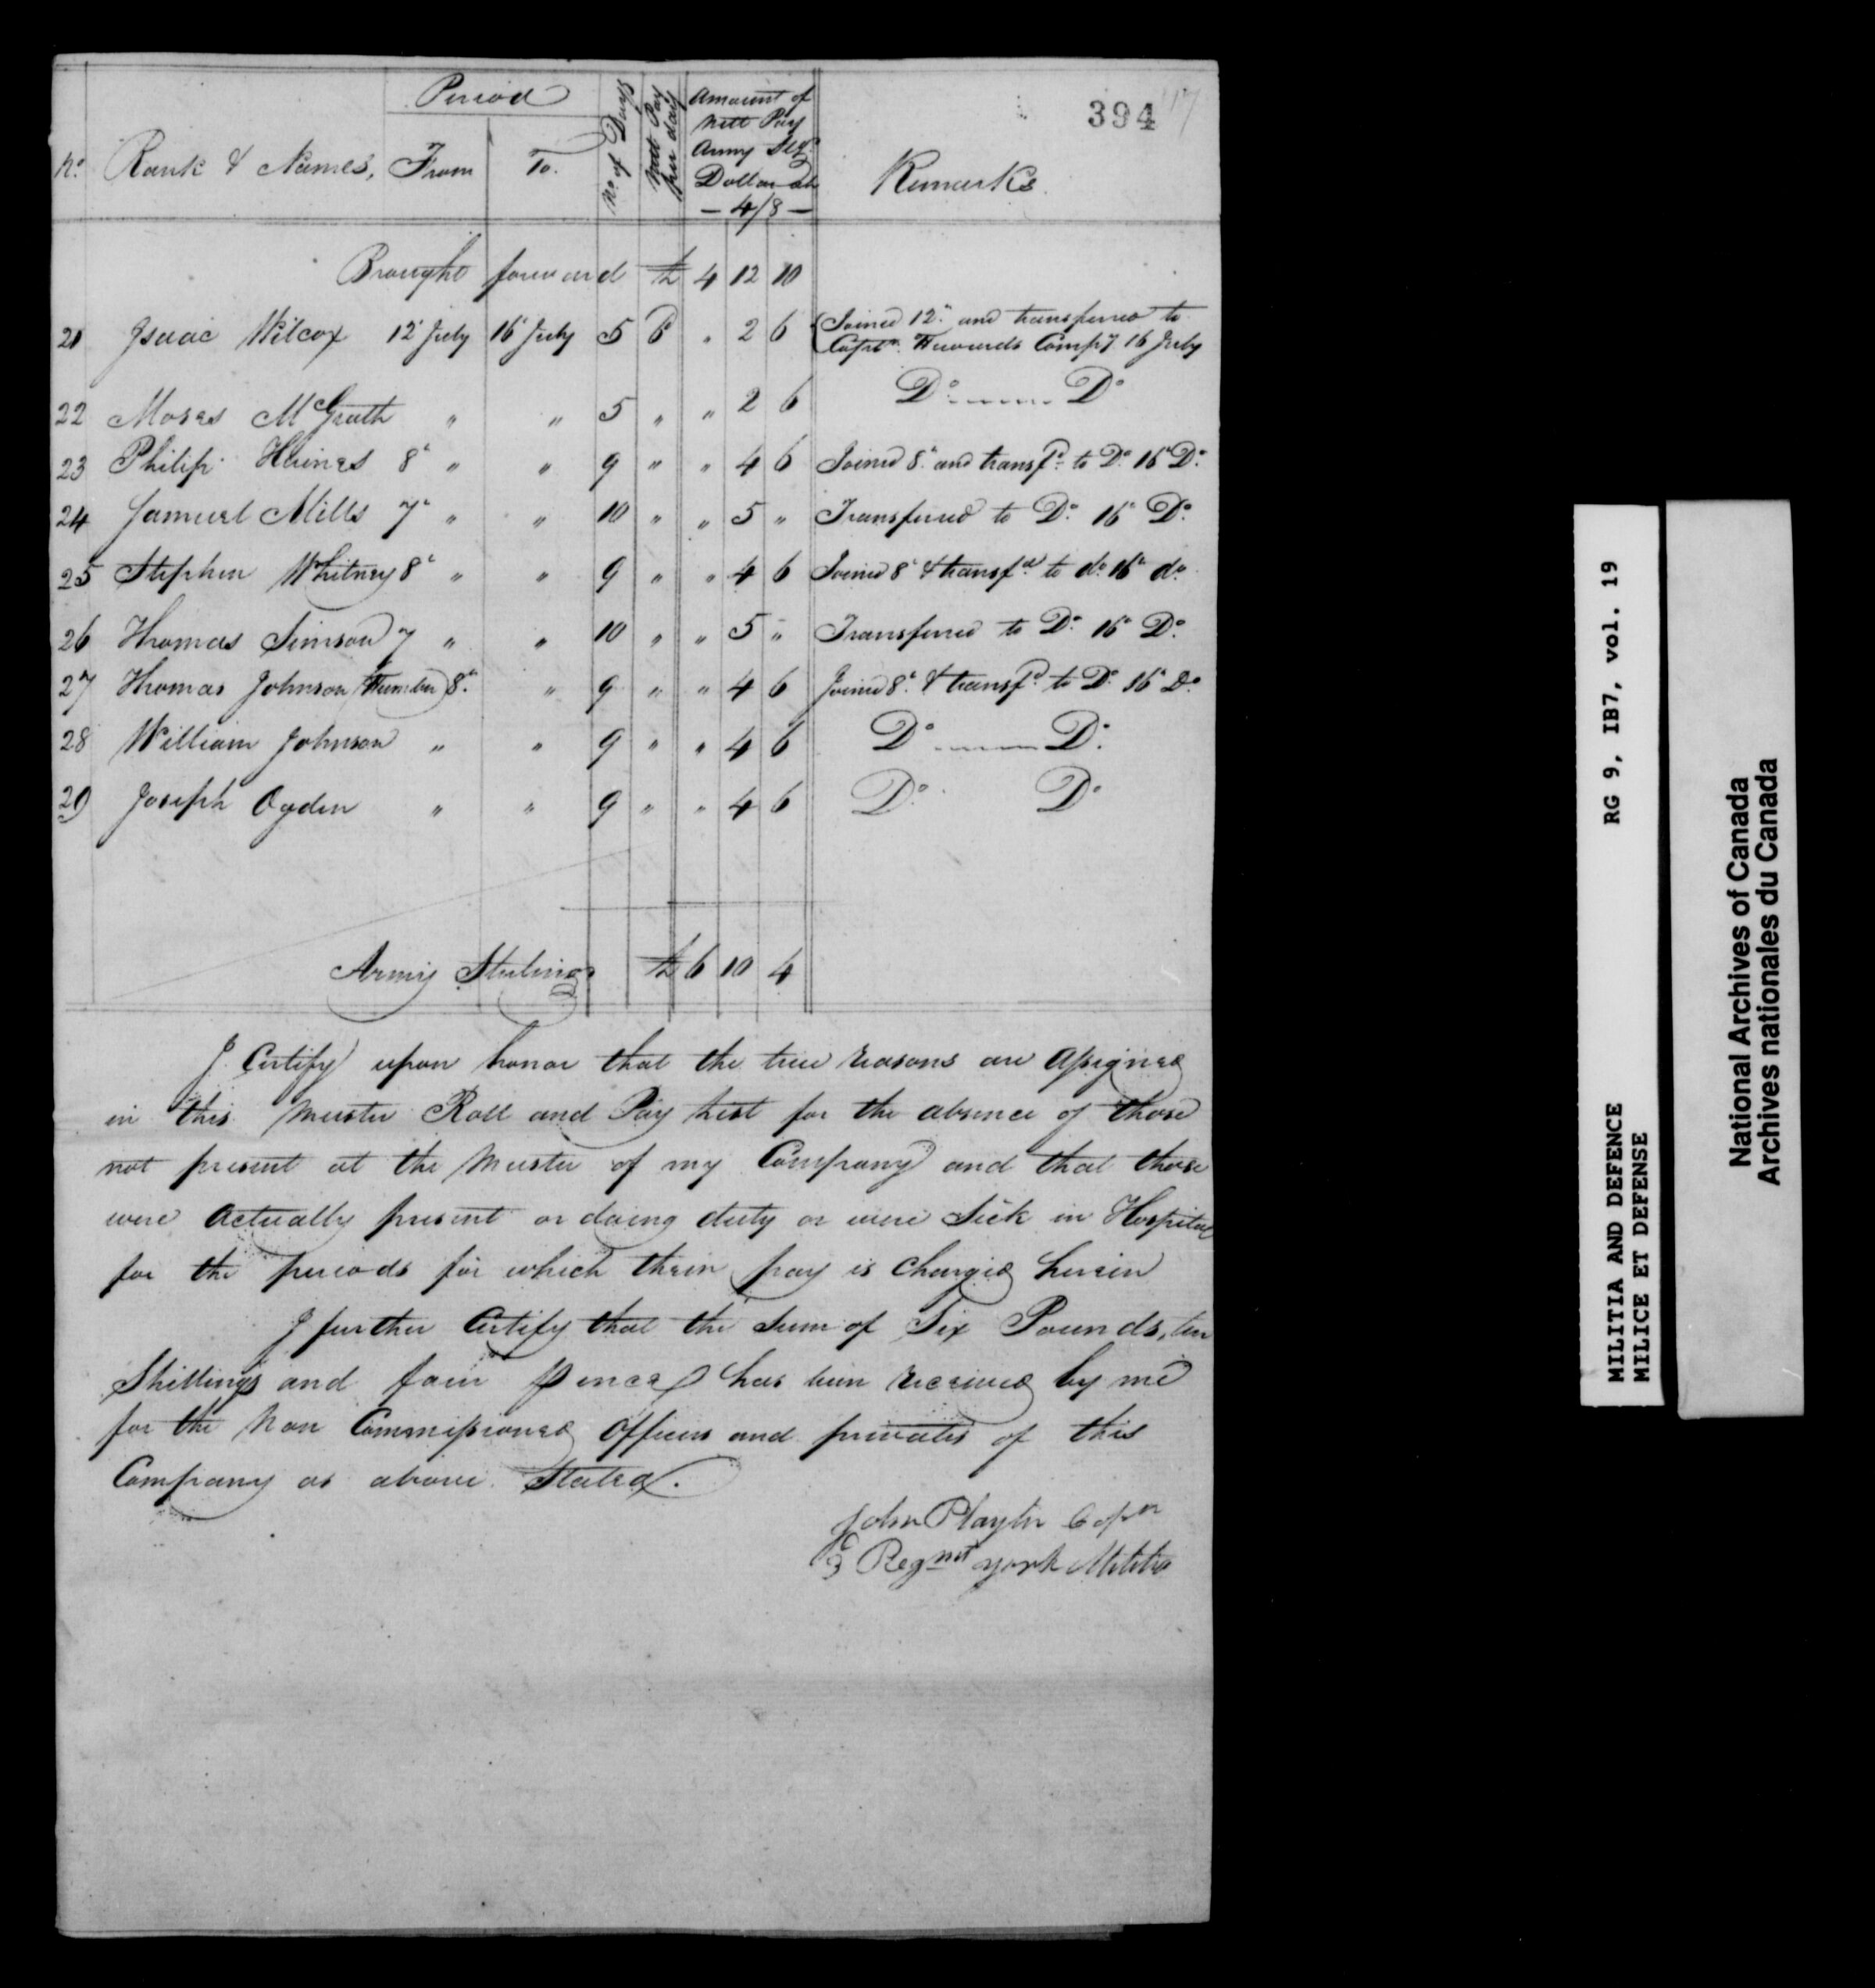 394 17
Period
No. Rank & Names, From To. No. of Days Nett Pay per day Amount of Nett Pay Army Stg. Dollar at 4/8 Remarks
Brought forward £ 4 12 10
21 Isaac Wilcox 12th July 16th July 5 6 " 2 6 Joined 12th and transferred to
Captn. Howards Compy 16 July
22 Moses McGrath " " 5 " " 2 6 Do ------ Do
23 Philip Haines 8th " " 9 " " 4 6 Joined 8th and transfd to Do. 16th Do.
24 Samuel Mills 7th " " 10 " " 5 " Transferred to Do. 16th Do.
25 Stephen Whitney 8th " " 9 " " 4 6 Joined 8th & transfd to do 16th do.
26 Thomas Simson 7 " " 10 " " 5 " Transferred to Do. 16th Do.
27 Thomas Johnson (Humber) 8th " 9 " " 4 6 Joined 8th & transfd to Do 16th Do.
28 William Johnson " " 9 " " 4 6 Do ------ Do.
29 Joseph Ogden " " 9 " " 4 6 Do. Do
Army Sterling £ 6 10 4
I Certify upon honor that the true reasons are assigned
in this Muster Roll and Pay List for the absence of those
not present at the Muster of my Company and that those
were actually present or doing duty or were Sick in Hospital
for the periods for which their pay is charged herein
I further Certify that the Sum of Six Pounds, ten
Shillings and four pence has been received by me
for the Non Commissioned Officers and privates of this
Company as above Stated.
John Playter Capn
3 Regmt york Militia
MILITIA AND DEFENCE RG 9, IB7, vol. 19
MILICE ET DEFENSE
National Archives of Canada
Archives nationales du Canada